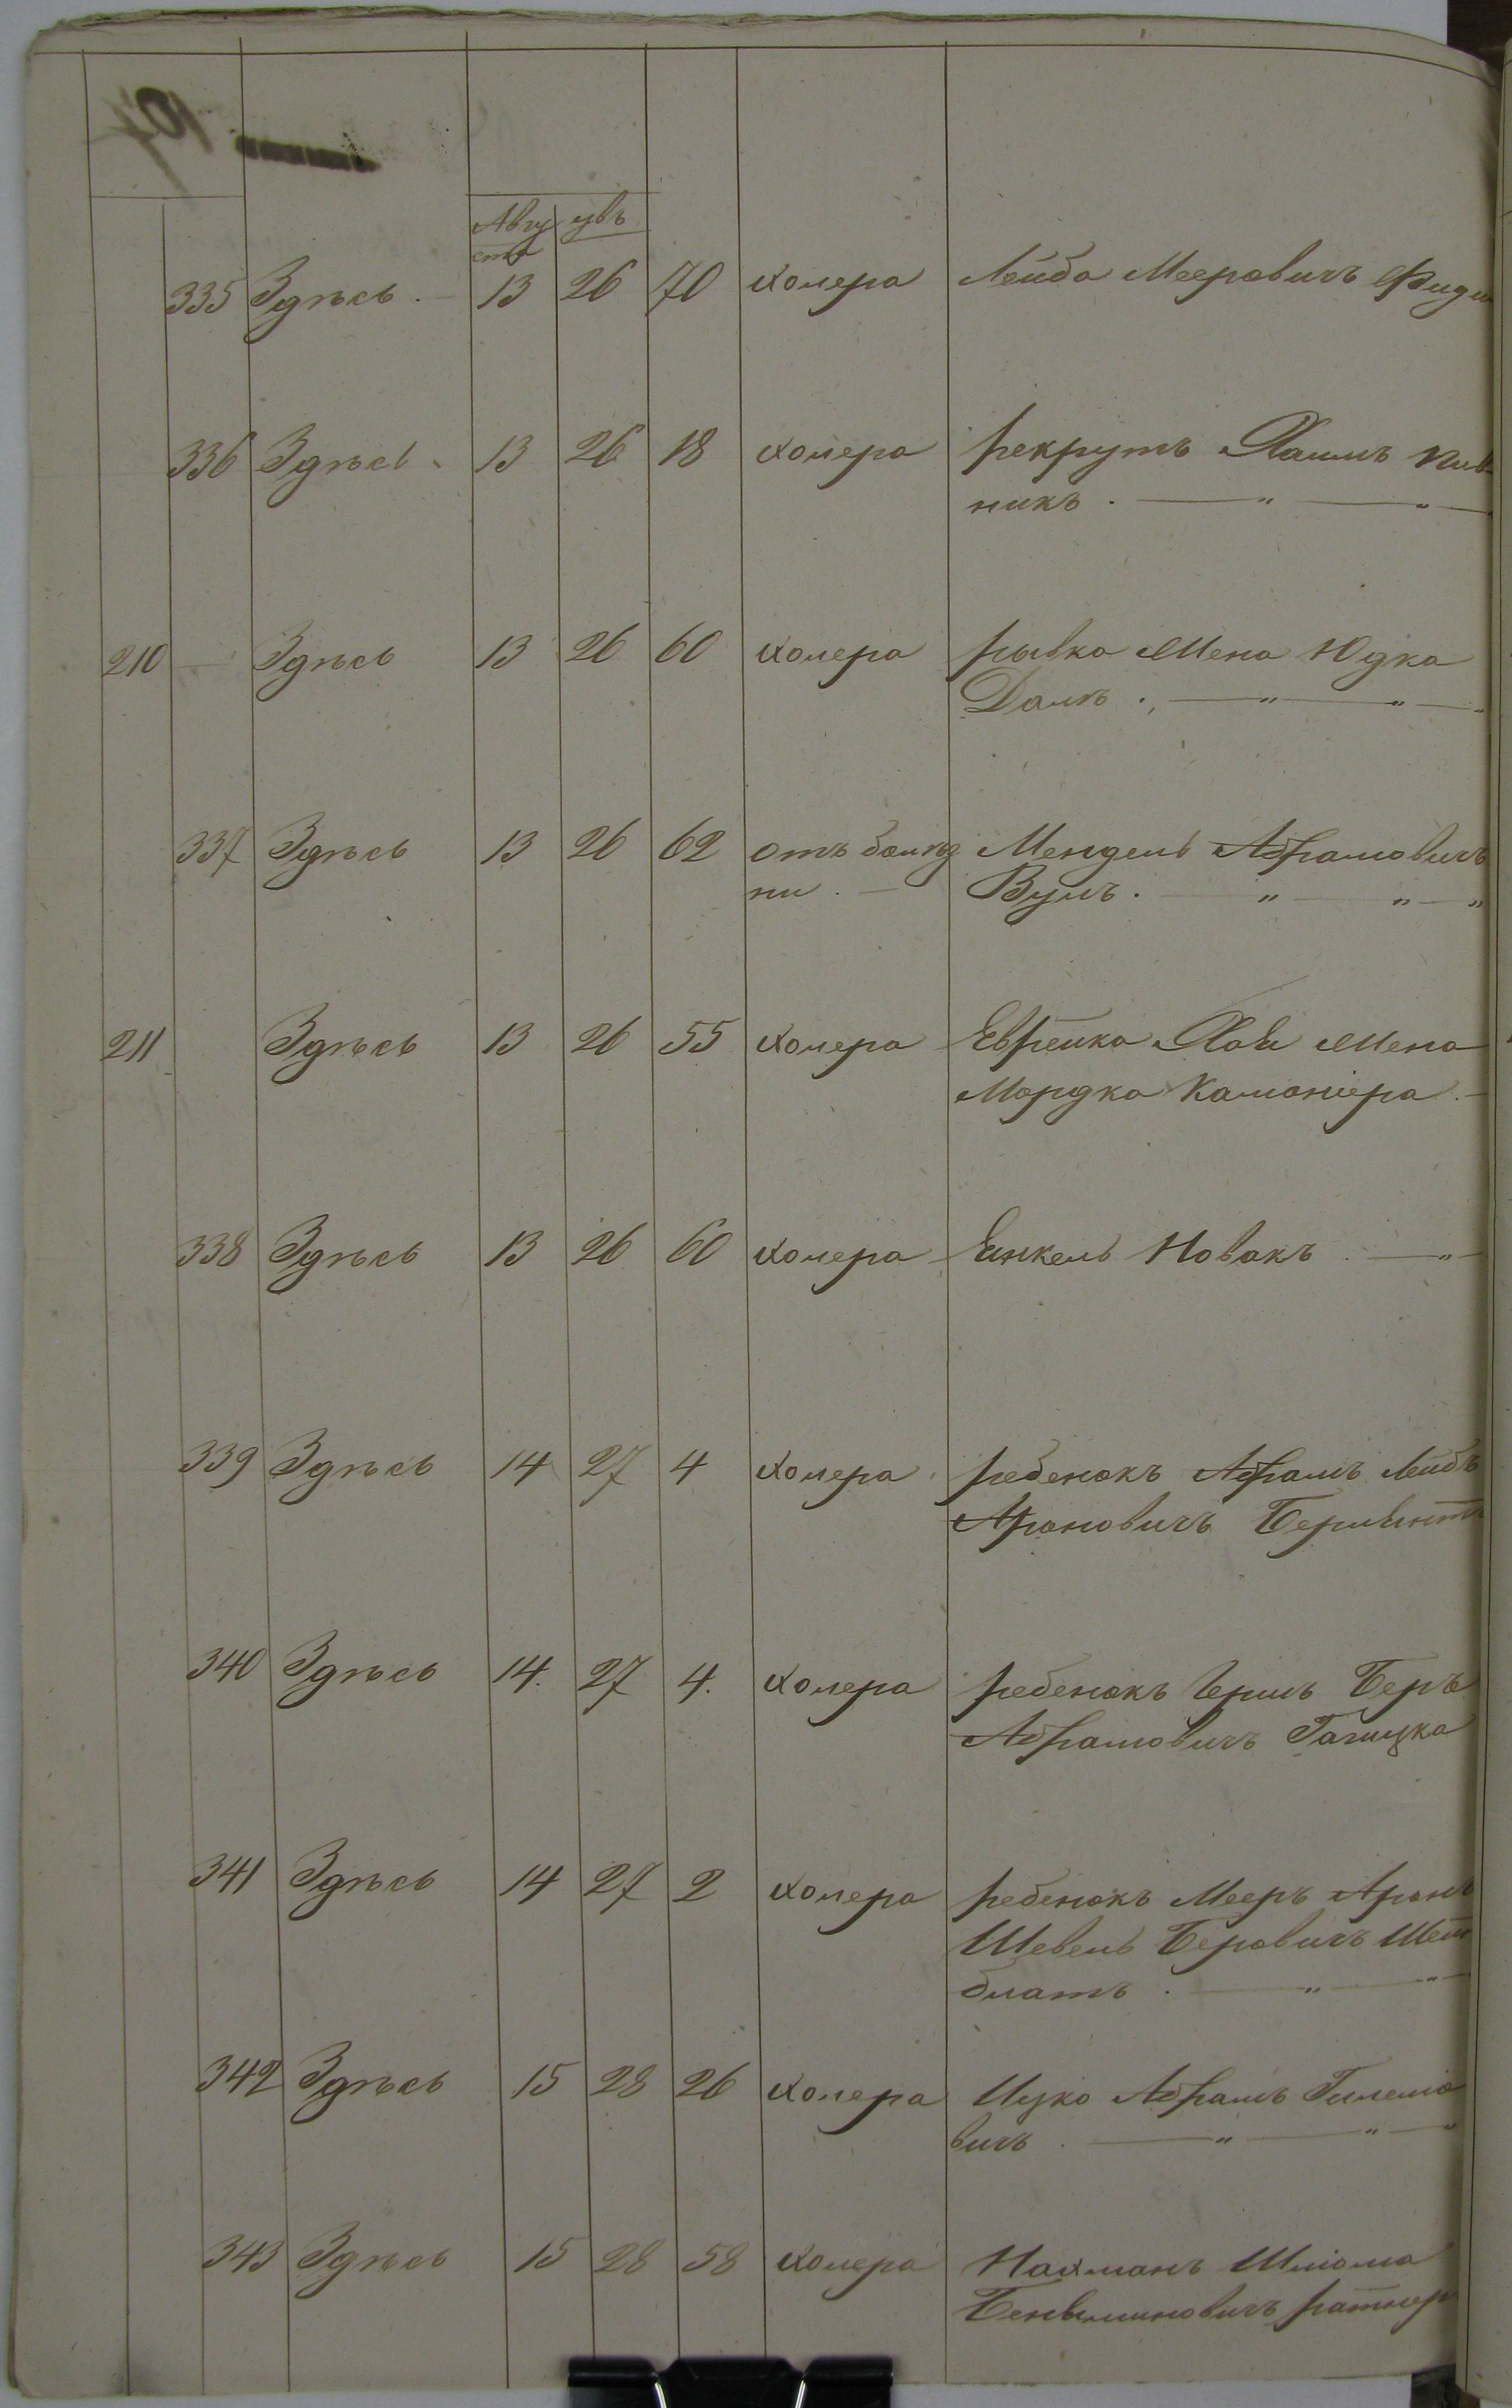 Авгу увъ
ста
335 Здѣсь. 13 26 70 холера Лейба Мееровичъ
336 Здѣсь. 13 26 18 холера рекрутъ Хаимъ
никъ.
210 Здѣсь 13 26 60 холера рывка жена Юдка
337 Здѣсь 13 26 62 отъ болѣз Мендель Абрамовичъ
ни. Вулъ.
211 Здѣсь 13 26 55 холера Еврейка Хая жена
Мордка
338 Здѣсь 13 26 60 холера Янкель Новакъ
339 Здѣсь 14 27 4 холера ребенокъ Абрамъ Лейбъ
Ароновичъ
340 Здѣсь 14. 27 4. холера ребенокъ Гершъ Беръ
Абрамовичъ
341 Здѣсь 14 27 2 холера ребенокъ Мееръ Аронъ
Шевель Беровичъ
блатъ.
342 Здѣсь 15 28 26 холера Ицко Абрамъ
вичъ.
343 Здѣсь 15 28 58 холера Нахманъ Шліома
Беньяминовичъ ратнер